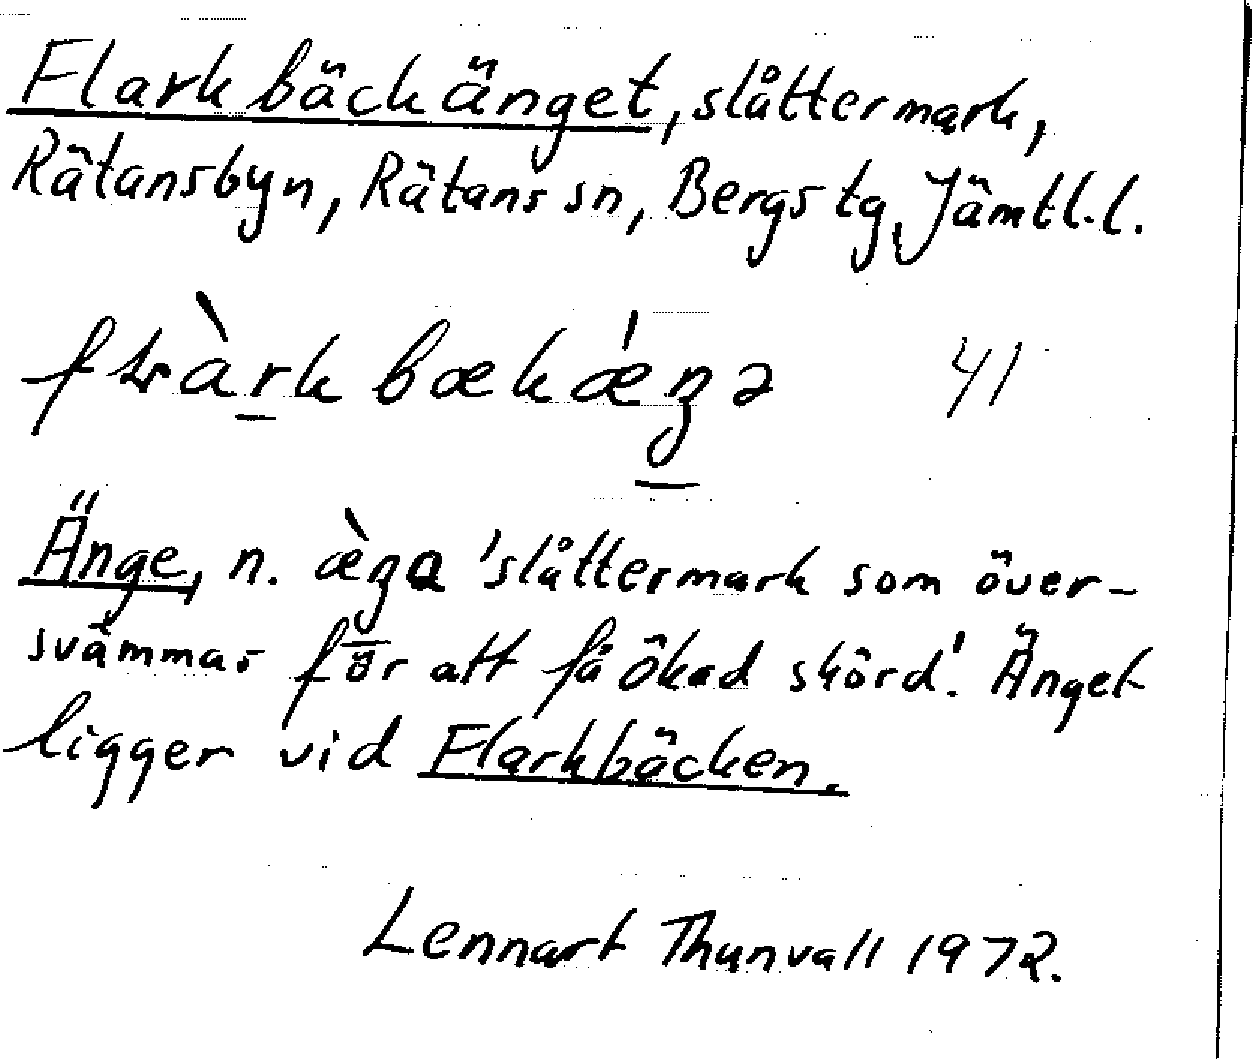 Flarkbäckänget, slåttermark,
Rätansbyn, Rätans sn, Bergs tg, Jämtl. l.
41
Änge, n. 'slåttermark som över-
svämmas för att få ökad skörd'. Änget
ligger vid Flarkbäcken.
Lennart Thunvall 1972.